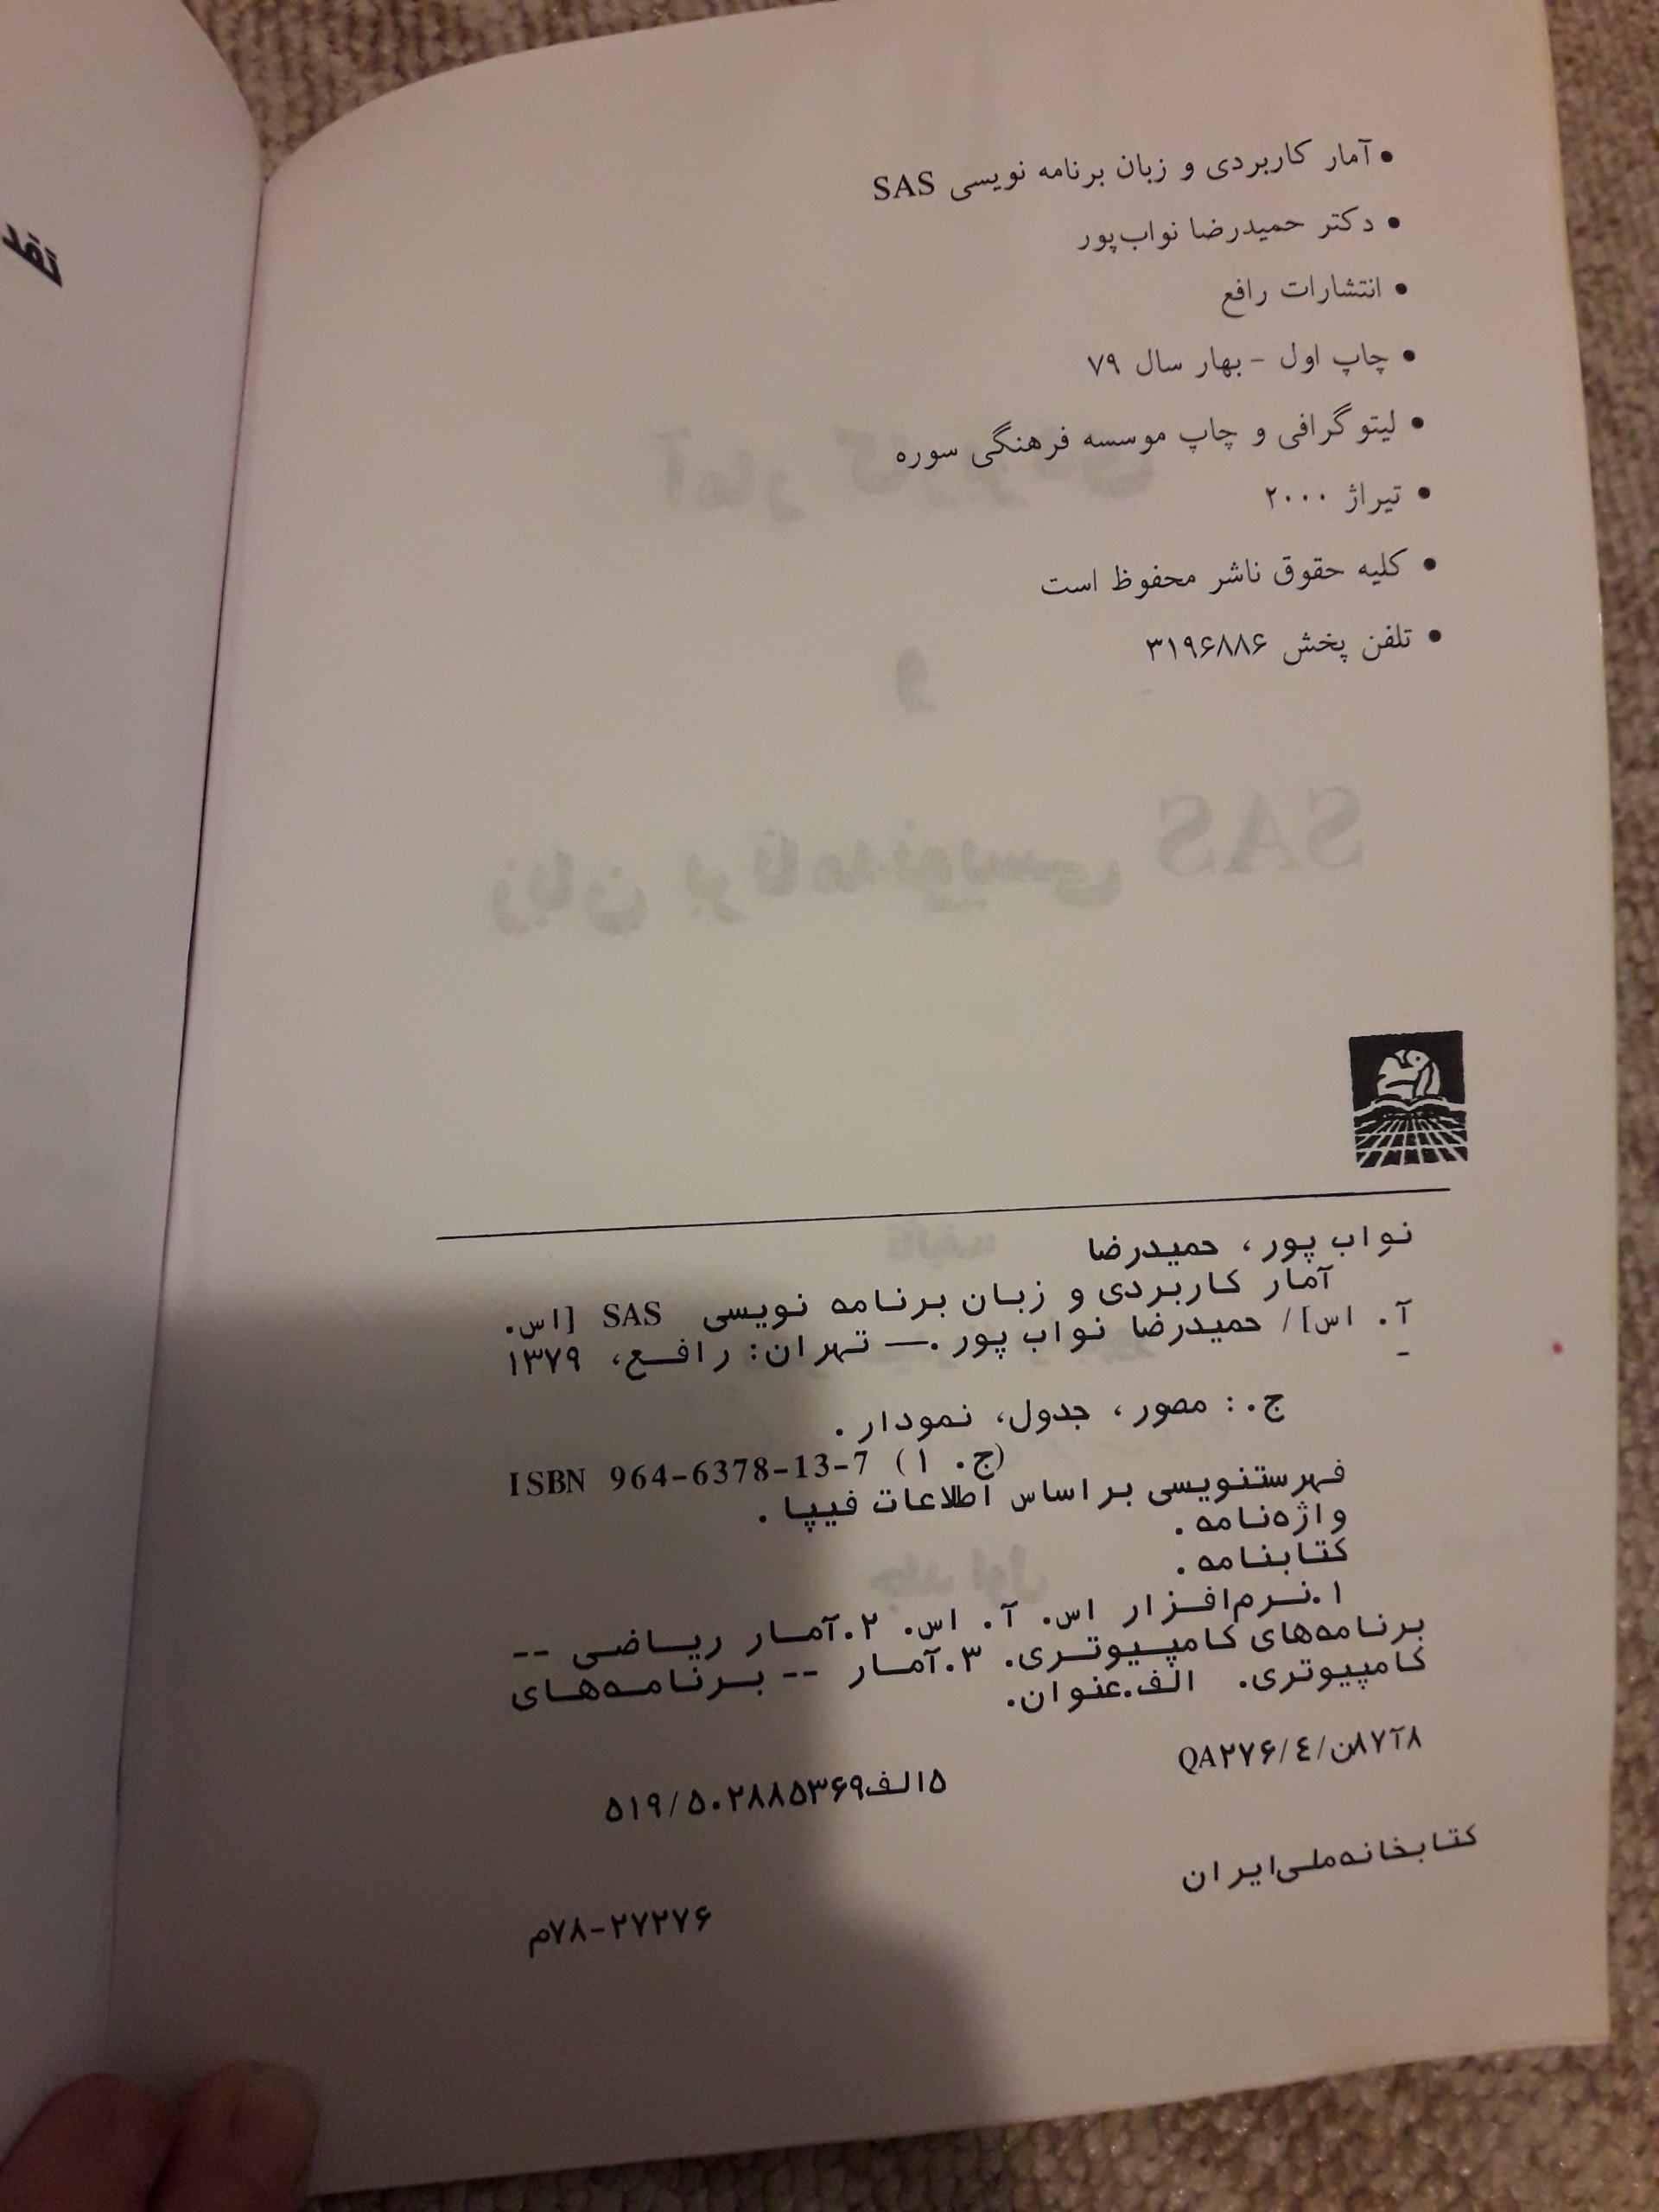 • آمار کاربردی و زبان برنامه نویسی SAS
• دکتر حمیدرضا نواب‌پور
• انتشارات رافع
• چاپ اول - بهار سال ۷۹
• لیتوگرافی و چاپ موسسه فرهنگی سوره
• تیراژ ۲۰۰۰
• کلیه حقوق ناشر محفوظ است
• تلفن پخش ۳۱۹۶۸۸۶
نواب پور، حمیدرضا
آمار کاربردی و زبان برنامه نویسی SAS [اس.
آ. اس]/ حمیدرضا نواب پور .— تهران: رافع، ۱۳۷۹
-
ج.: مصور، جدول، نمودار.
ISBN 964-6378-13-7 (ج. ۱)
فهرستنویسی براساس اطلاعات فیپا.
واژه‌نامه.
کتابنامه.
۱.نرم‌افزار اس. آ. اس. ۲.آمار ریاضی --
برنامه‌های کامپیوتری. ۳.آمار -- برنامه‌های
کامپیوتری. الف.عنوان.
۸آ۷۸ن/۴/QA۲۷۶
۵الف۵۱۹/۵۰۲۸۸۵۳۶۹
کتابخانه‌ملی‌ایران
م۷۸-۲۷۲۷۶